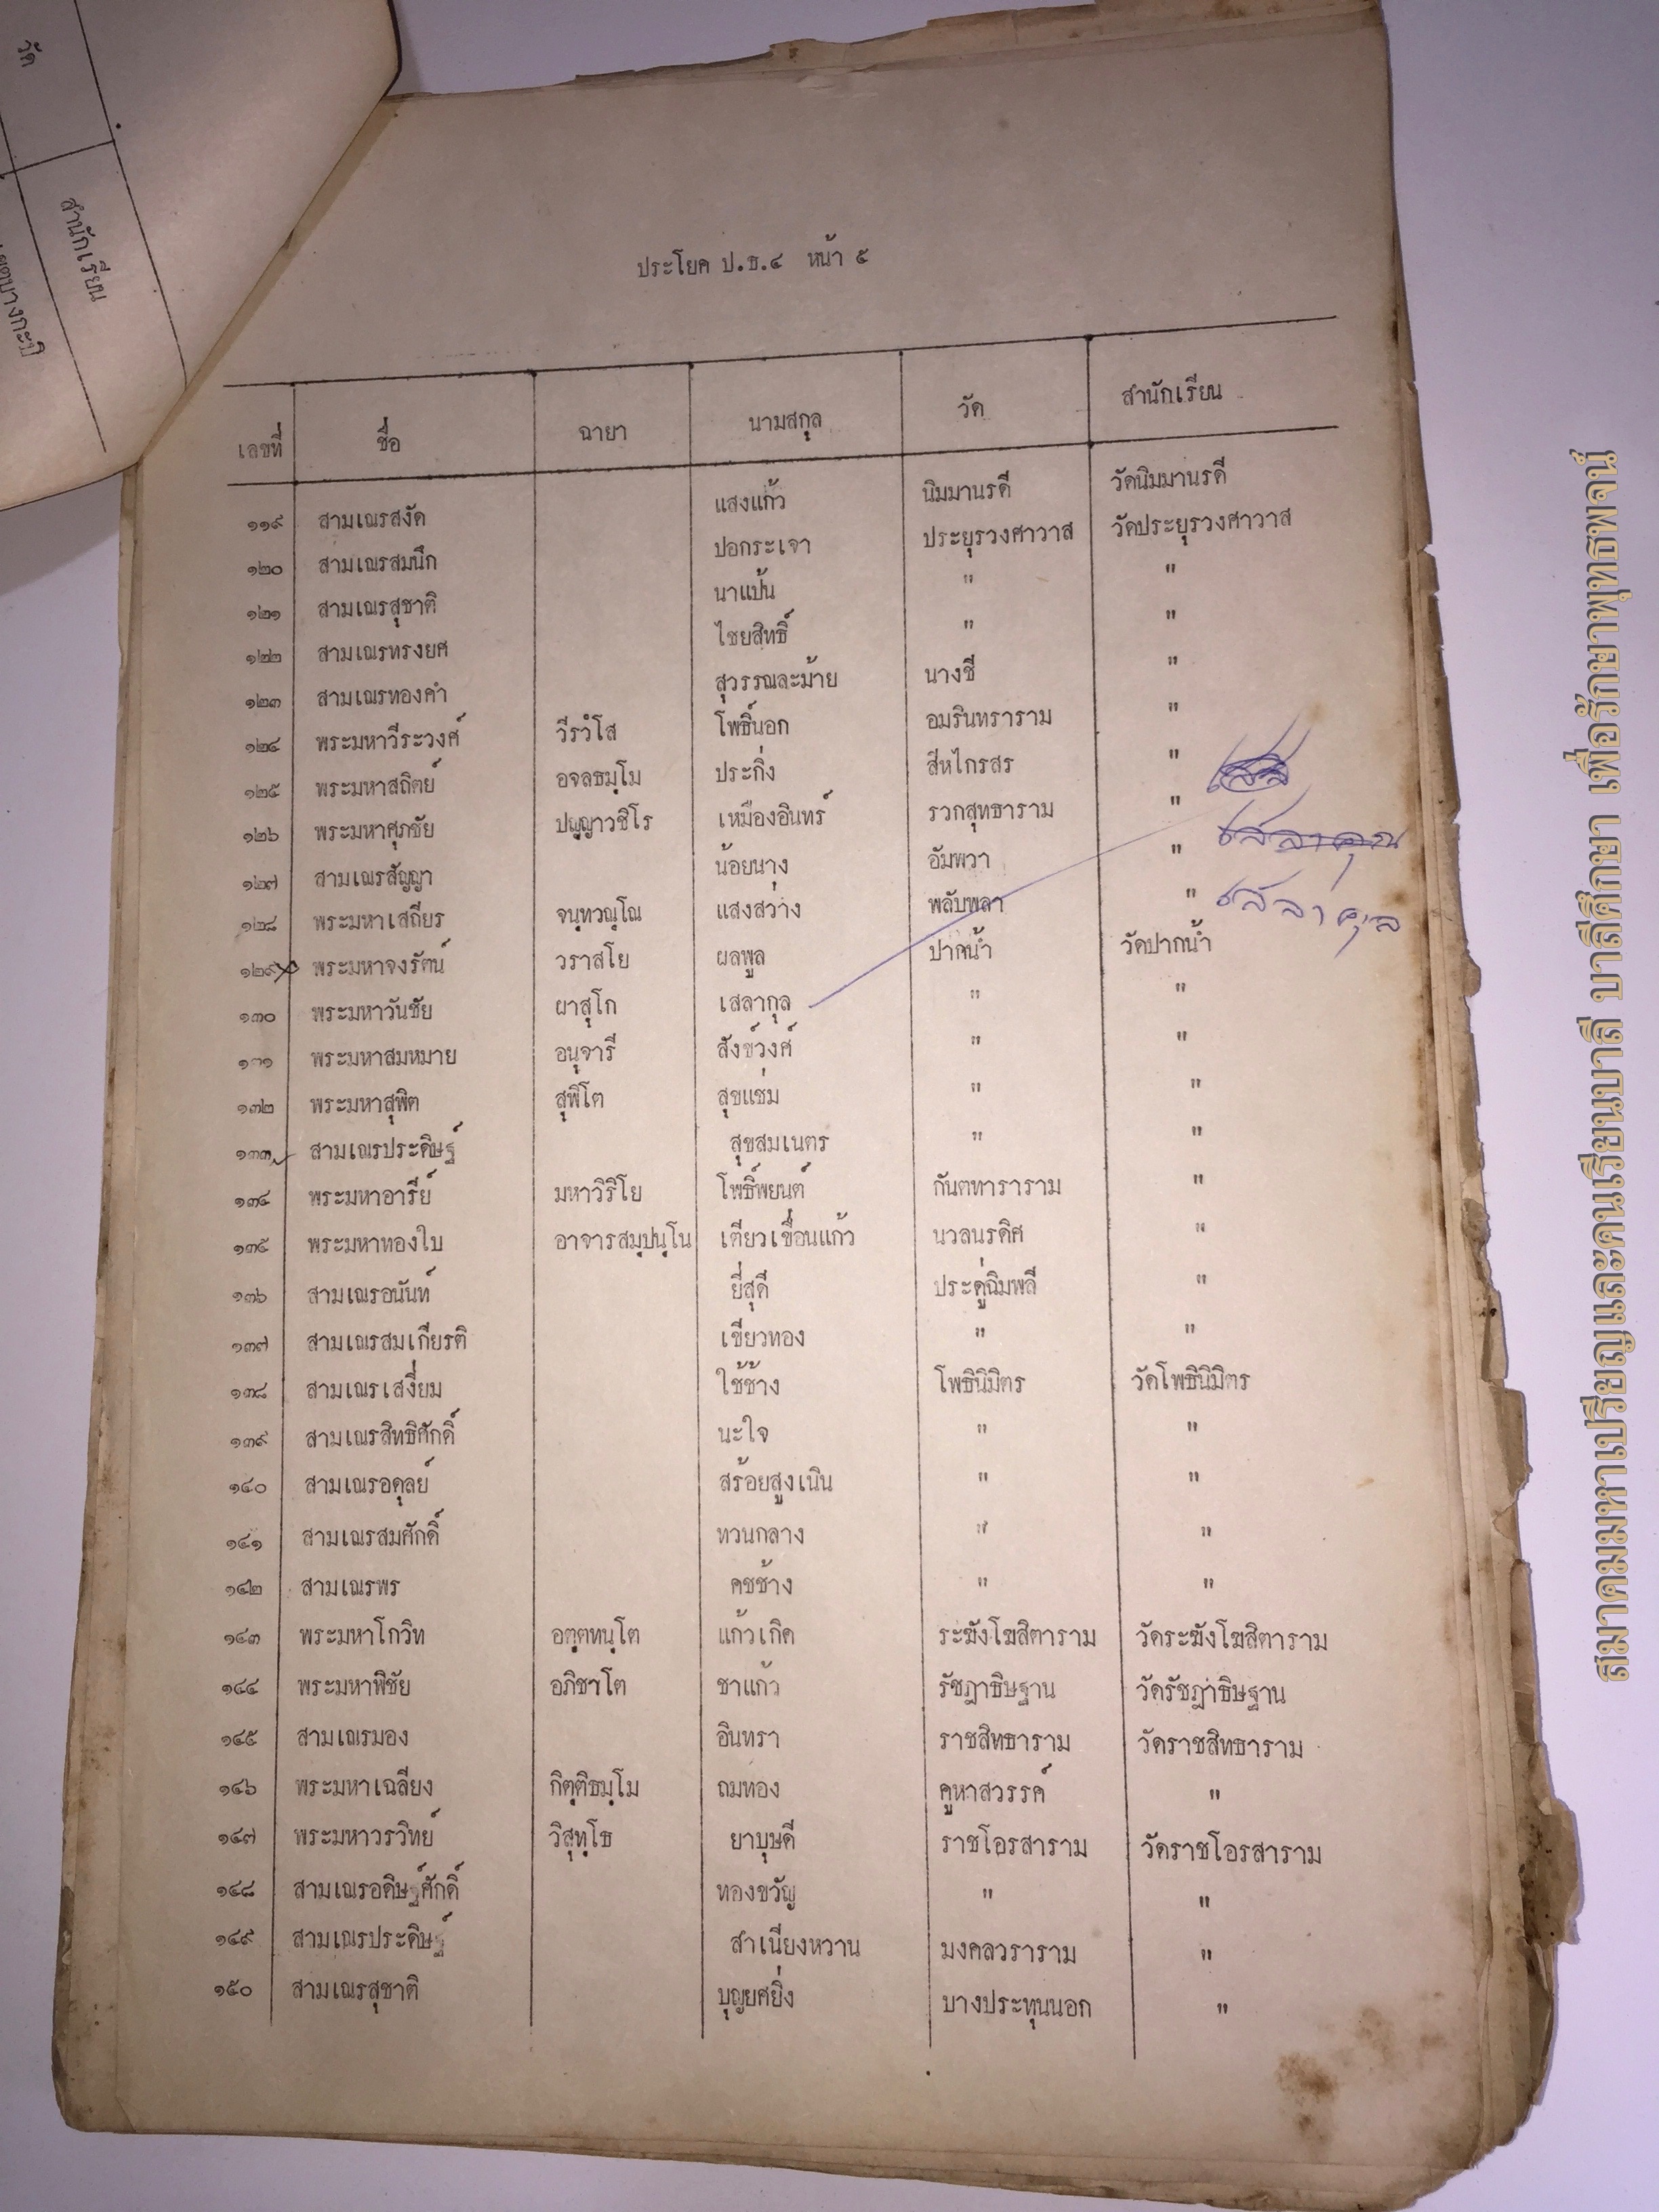 วัด
สำนักเรียน
ประโยค ป.ธ.๔ หน้า ๕
เลขที่ ชื่อ ฉายา นามสกุล วัด สำนักเรียน
๑๑๙ สามเณรสงัด แสงแก้ว นิมมานรดี วัดนิมมานรดี
๑๒๐ สามเณรสมนึก ปอกระเจา ประยุรวงศาวาส วัดประยุรวงศาวาส
๑๒๑ สามเณรสุชาติ นาแป้น " "
๑๒๒ สามเณรทรงยศ ไชยสิทธิ์ " "
๑๒๓ สามเณรทองคำ สุวรรณละม้าย นางชี "
๑๒๔ พระมหาวีระวงศ์ วีรวํโส โพธิ์นอก อมรินทราราม "
๑๒๕ พระมหาสถิตย์ อจลธมฺโม ประกิ่ง สีหไกรสร "
๑๒๖ พระมหาศุภชัย ปญฺญาวชิโร เหมืองอินทร์ รวกสุทธาราม "
๑๒๗ สามเณรสัญญา น้อยนาง อัมพวา "
๑๒๘ พระมหาเสถียร จนฺทวณฺโณ แสงสว่าง พลับพลา "
๑๒๙ พระมหาจงรัตน์ วราสโย ผลพูล ปากน้ำ วัดปากน้ำ
๑๓๐ พระมหาวันชัย ผาสุโก เสลากุล " "
๑๓๑ พระมหาสมหมาย อนุจารี สังข์วงศ์ " "
๑๓๒ พระมหาสุพิต สุพิโต สุขแช่ม " "
๑๓๓ สามเณรประดิษฐ์ สุขสมเนตร " "
๑๓๔ พระมหาอารีย์ มหาวิริโย โพธิ์พยนต์ กันตทาราราม "
๑๓๕ พระมหาทองใบ อาจารสมฺปนฺโน เตียวเขื่อนแก้ว นวลนรดิศ "
๑๓๖ สามเณรอนันท์ ยี่สุดี ประดู่ฉิมพลี "
๑๓๗ สามเณรสมเกียรติ เขียวทอง " "
๑๓๘ สามเณรเสงี่ยม ใช้ช้าง โพธินิมิตร วัดโพธินิมิตร
๑๓๙ สามเณรสิทธิศักดิ์ นะใจ " "
๑๔๐ สามเณรอดุลย์ สร้อยสูงเนิน " "
๑๔๑ สามเณรสมศักดิ์ ทวนกลาง " "
๑๔๒ สามเณรพร คชช้าง " "
๑๔๓ พระมหาโกวิท อตฺตทนฺโต แก้วเกิด ระฆังโฆสิตาราม วัดระฆังโฆสิตาราม
๑๔๔ พระมหาพิชัย อภิชาโต ชาแก้ว รัชฎาธิษฐาน วัดรัชฎาธิษฐาน
๑๔๕ สามเณรมอง อินทรา ราชสิทธาราม วัดราชสิทธาราม
๑๔๖ พระมหาเฉลียง กิตฺติธมฺโม ถมทอง คูหาสวรรค์ "
๑๔๗ พระมหาวรวิทย์ วิสุทฺโธ ยาบุษดี ราชโอรสาราม วัดราชโอรสาราม
๑๔๘ สามเณรอดิษฐ์ศักดิ์ ทองขวัญ " "
๑๔๙ สามเณรประดิษฐ์ สำเนียงหวาน มงคลวราราม "
๑๕๐ สามเณรสุชาติ บุญยศยิ่ง บางประทุนนอก "
สมาคมมหาเปรียญและคนเรียนบาลี บาลีศึกษา เพื่อรักษาพุทธพจน์